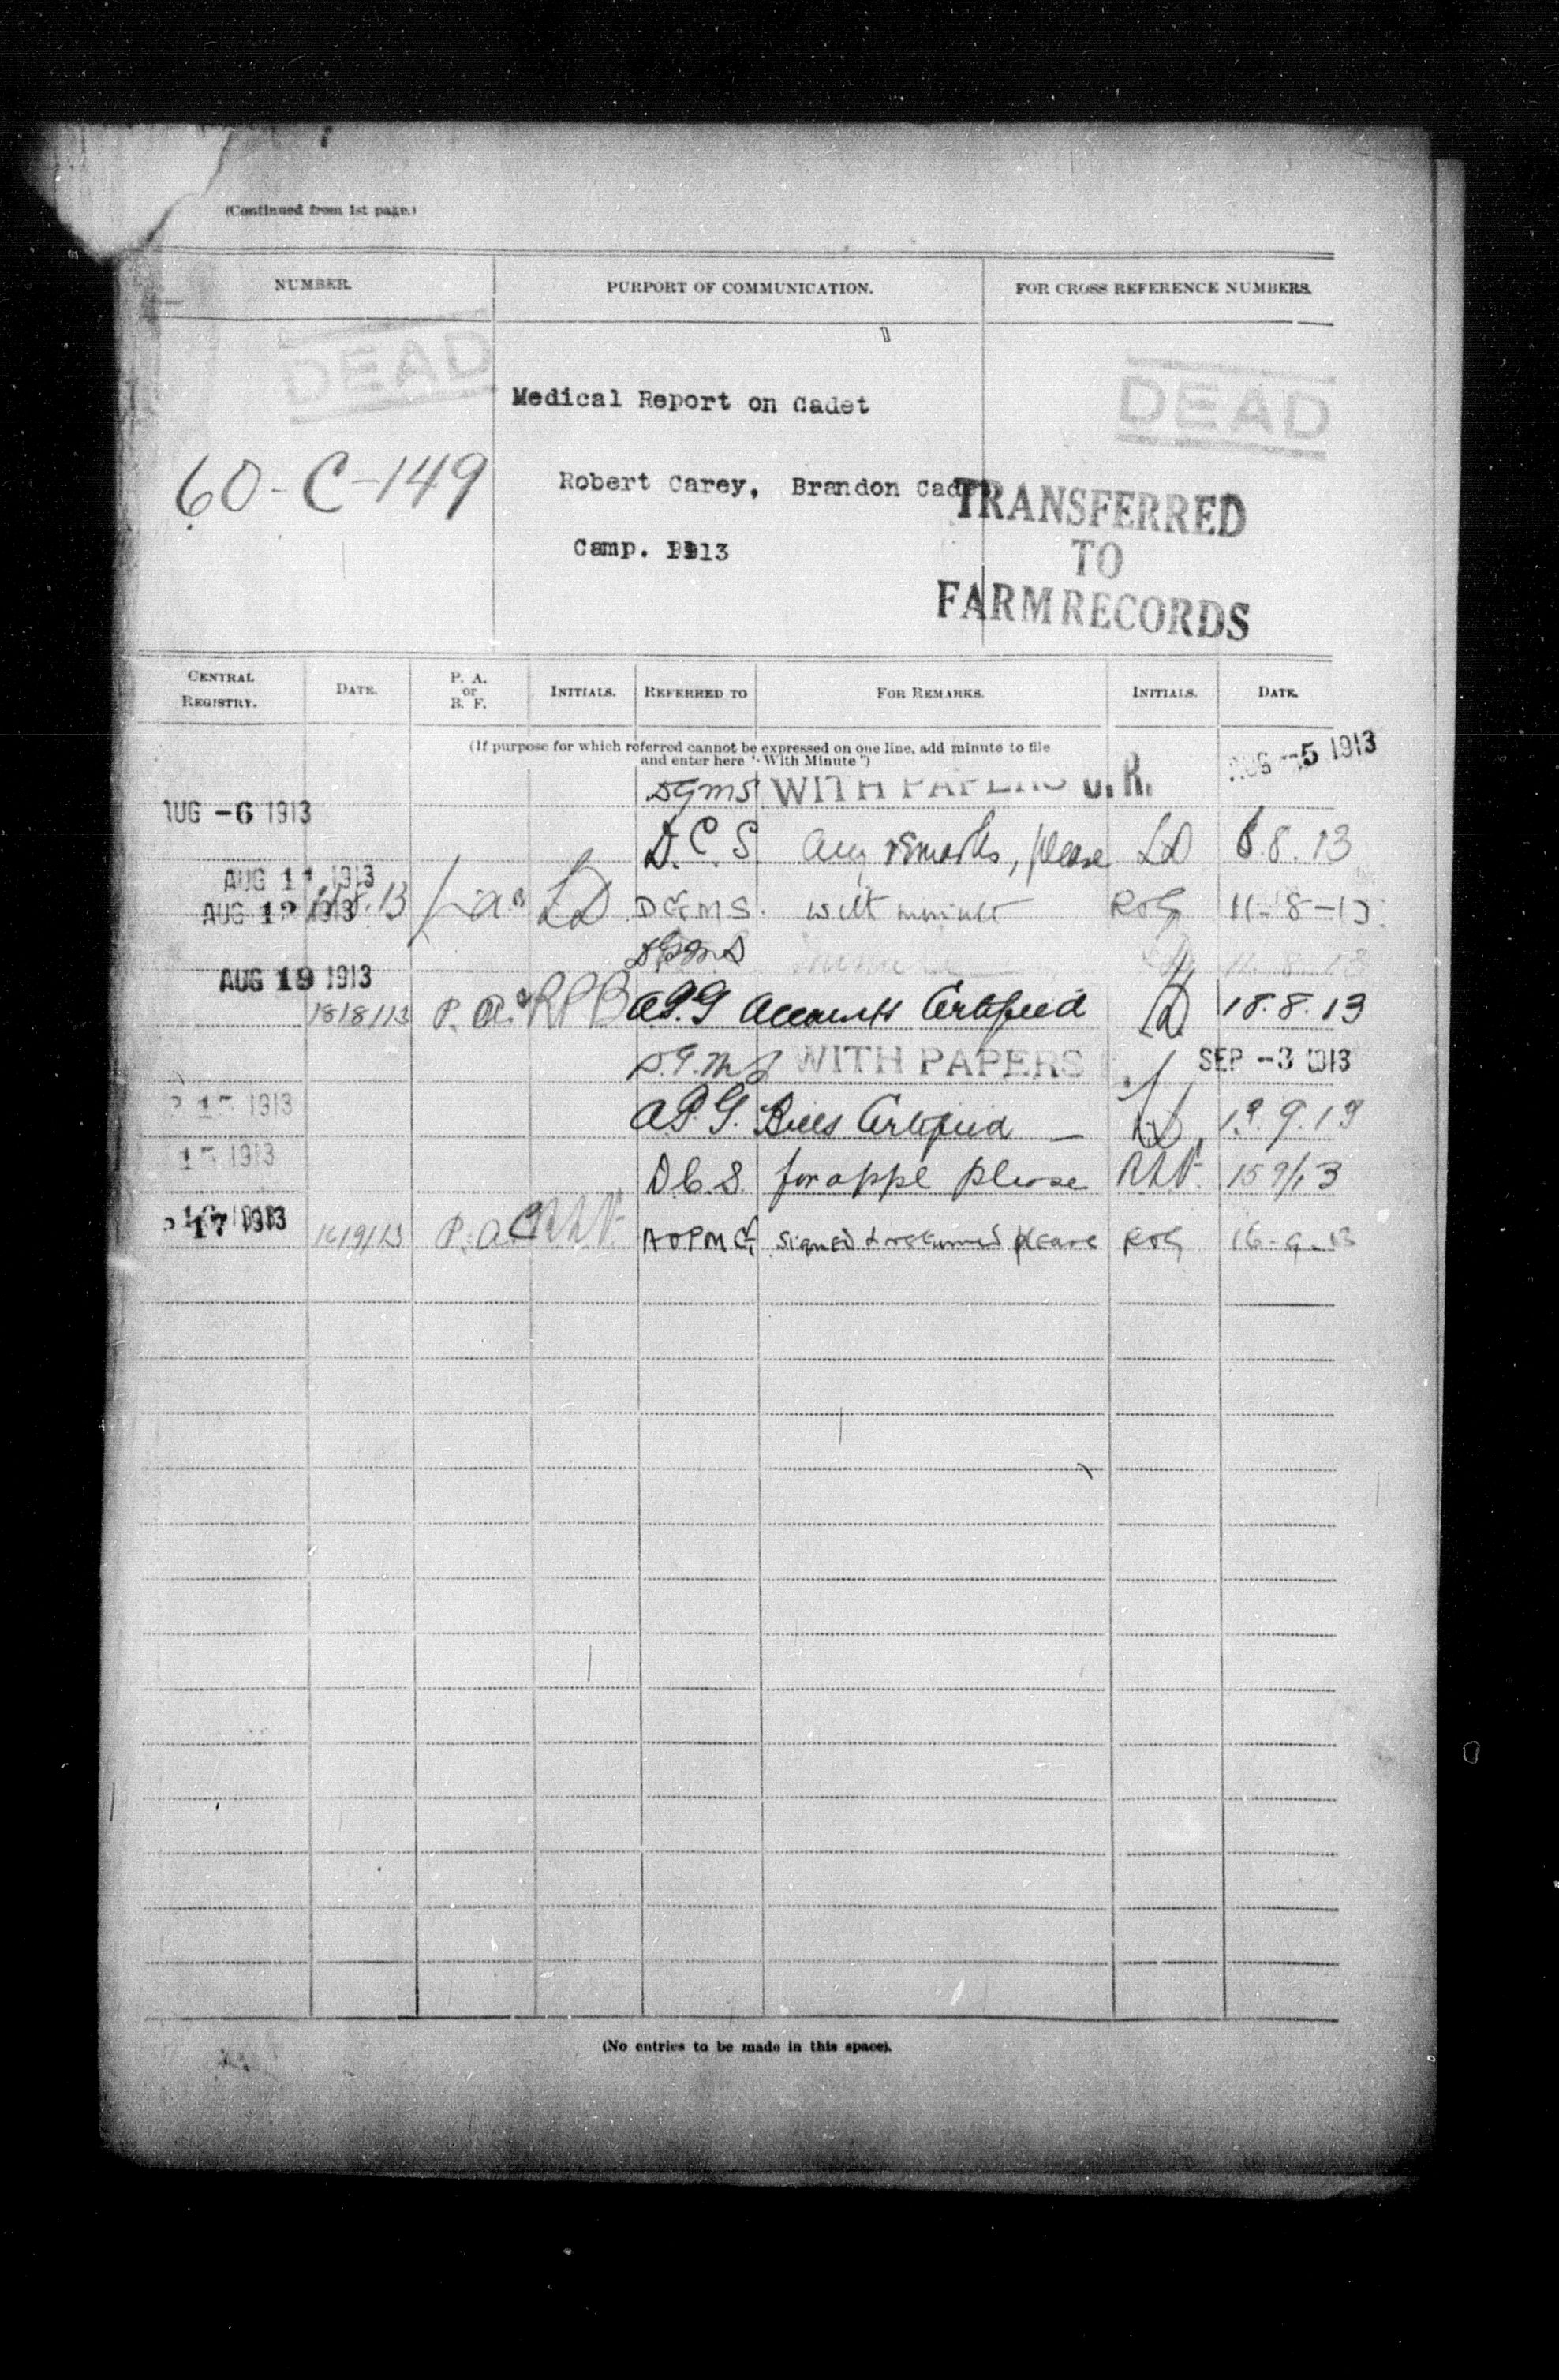 (Continued from 1st page.)
NUMBER. PURPORT OF COMMUNICATION. FOR CROSS REFERENCE NUMBERS.
DEAD DEAD
Medical Report on Cadet
60-C-149
Robert Carey, Brandon Cadet
TRANSFERRED
TO
FARM RECORDS
Camp. 1913
CENTRAL REGISTRY. DATE. P. A. or B. F. INITIALS. REFERRED TO FOR REMARKS. INITIALS. DATE.
(If purpose for which referred cannot be expressed on one line, add minute to file
and enter here "With Minute")
DGMS WITH PAPERS C.R. AUG -5 1913
AUG -6 1913
D.C.S. any remarks, please LD 6.8.13
AUG 11 1913
AUG 12 1913 LD DGMS. with minute 11-8-13
DGMS 11.8.13
AUG 19 1913
18/8/13 P.A. RPB APG Accounts Certified LD 18.8.13
D.G.M.S WITH PAPERS SEP -3 1913
1913 A.P.G. Bills Certified LD 9.13
1913 D.C.S. for appl please 15/9/13
17 1913 16/9/13 P.A. signed & returned please 16-9-13
(No entries to be made in this space).